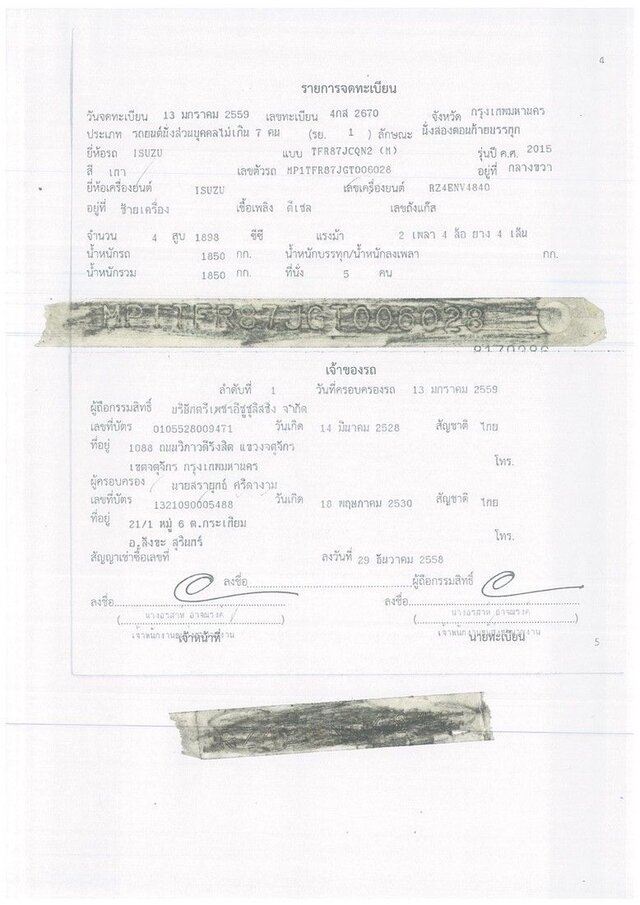 4
รายการจดทะเบียน
วันจดทะเบียน 13 มกราคม 2559 เลขทะเบียน 4กส 2670 จังหวัด กรุงเทพมหานคร
ประเภท รถยนต์นั่งส่วนบุคคลไม่เกิน 7 คน (รย. 1 ) ลักษณะ นั่งสองตอนท้ายบรรทุก
ยี่ห้อรถ ISUZU แบบ TFR87JCQN2 (M) รุ่นปี ค.ศ. 2015
สี เทา เลขตัวรถ MP1TFR87JGT006028 อยู่ที่ กลางขวา
ยี่ห้อเครื่องยนต์ ISUZU เลขเครื่องยนต์ RZ4ENV4840
อยู่ที่ ซ้ายเครื่อง เชื้อเพลิง ดีเซล เลขถังแก๊ส
จำนวน 4 สูบ 1898 ซีซี แรงม้า 2 เพลา 4 ล้อ ยาง 4 เส้น
น้ำหนักรถ 1850 กก. น้ำหนักบรรทุก/น้ำหนักลงเพลา กก.
น้ำหนักรวม 1850 กก. ที่นั่ง 5 คน
MP1TFR87JGT006028
เจ้าของรถ
ลำดับที่ 1 วันที่ครอบครองรถ 13 มกราคม 2559
ผู้ถือกรรมสิทธิ์ บริษัทตรีเพชรอีซูซุลิสซิ่ง จำกัด
เลขที่บัตร 0105528009471 วันเกิด 14 มีนาคม 2528 สัญชาติ ไทย
ที่อยู่ 1088 ถนนวิภาวดีรังสิต แขวงจตุจักร
เขตจตุจักร กรุงเทพมหานคร โทร.
ผู้ครอบครอง นายสรายุทธ์ ศรีดางาม
เลขที่บัตร 1321090005488 วันเกิด 18 พฤษภาคม 2530 สัญชาติ ไทย
ที่อยู่ 21/1 หมู่ 6 ต.กระเทียม
อ.สังขะ สุรินทร์ โทร.
สัญญาเช่าซื้อเลขที่ ลงวันที่ 29 ธันวาคม 2558
ลงชื่อ ผู้ถือกรรมสิทธิ์
ลงชื่อ ลงชื่อ
เจ้าหน้าที่ นายทะเบียน
5